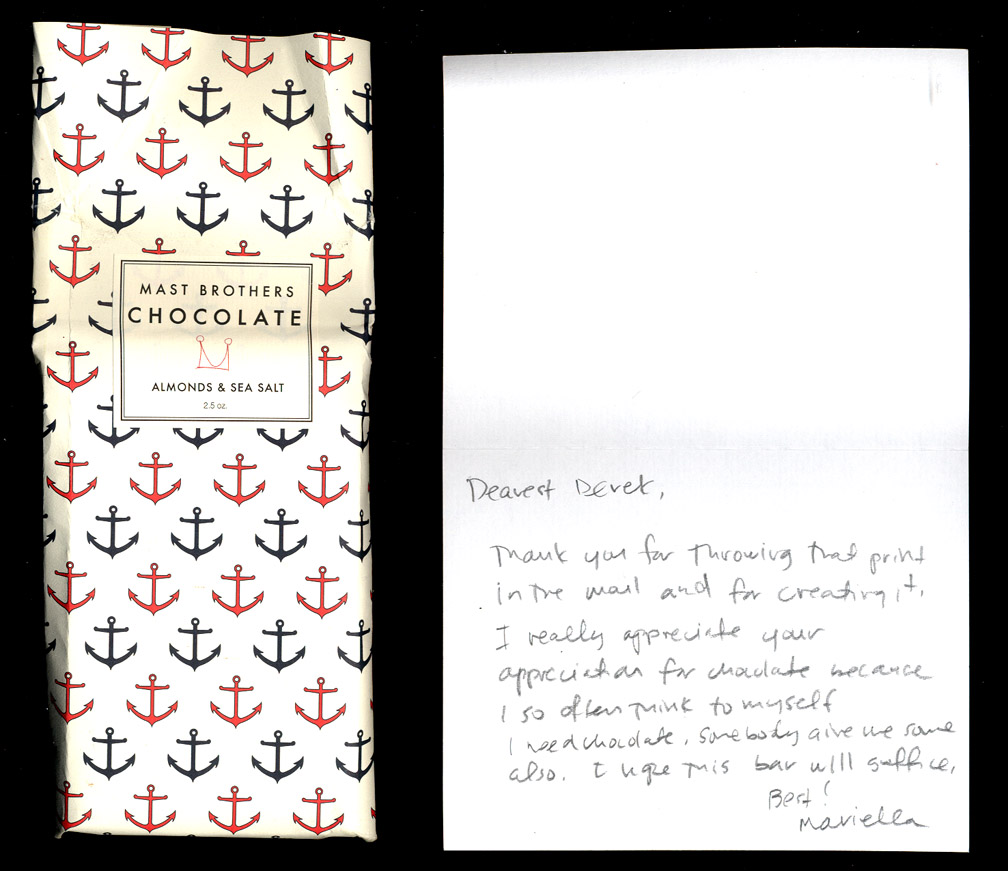 MAST BROTHERS
CHOCOLATE
ALMONDS & SEA SALT
2.5 oz.
Dearest Derek,
Thank you for throwing that print
in the mail and for creating it.
I really appreciate your
appreciation for chocolate because
I so often think to myself
I need chocolate, somebody give me some
also. I hope this bar will suffice,
Best!
Mariella